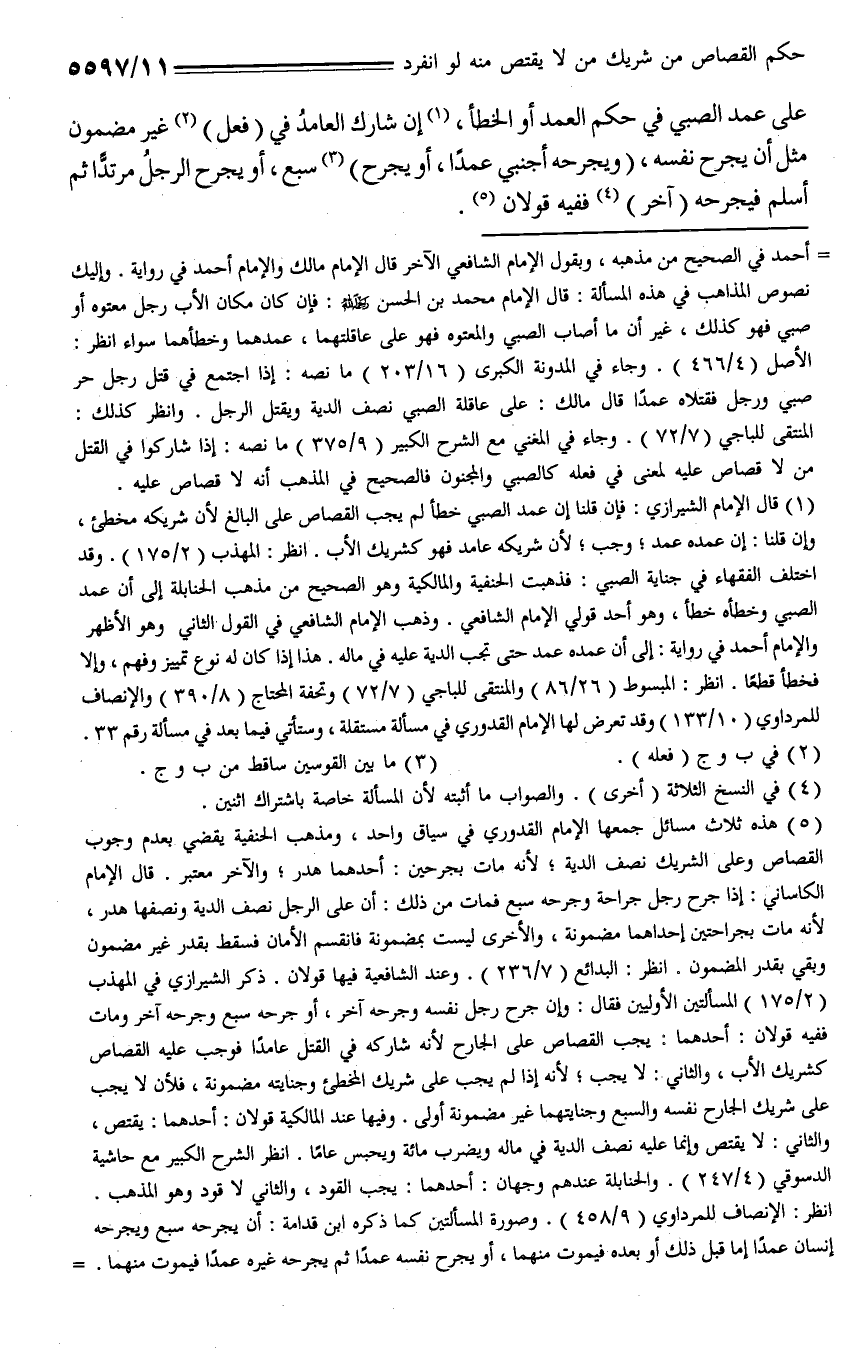 حكم القصاص من شريك من لا يقتص منه لو انفرد ٥٥٩٧/١١
على عمد الصبي في حكم العمد أو الخطأ ، (١) إن شارك العامدُ في ( فعل ) (٢) غير مضمون
مثل أن يجرح نفسه ، ( ويجرحه أجنبي عمدًا ، أو يجرح ) (٣) سبع ، أو يجرح الرجلُ مرتدًّا ثم
أسلم فيجرحه ( آخر ) (٤) ففيه قولان (٥) .
= أحمد في الصحيح من مذهبه ، وبقول الإمام الشافعي الآخر قال الإمام مالك والإمام أحمد في رواية . وإليك
نصوص المذاهب في هذه المسألة : قال الإمام محمد بن الحسن : فإن كان مكان الأب رجل معتوه أو
صبي فهو كذلك ، غير أن ما أصاب الصبي والمعتوه فهو على عاقلتهما ، عمدهما وخطأهما سواء انظر :
الأصل ( ٤٦٦/٤ ) . وجاء في المدونة الكبرى ( ٢٠٣/١٦ ) ما نصه : إذا اجتمع في قتل رجل حر
صبي ورجل فقتلاه عمدًا قال مالك : على عاقلة الصبي نصف الدية ويقتل الرجل . وانظر كذلك :
المنتقى للباجي ( ٧٢/٧ ) . وجاء في المغني مع الشرح الكبير ( ٣٧٥/٩ ) ما نصه : إذا شاركوا في القتل
من لا قصاص عليه لمعنى في فعله كالصبي والمجنون فالصحيح في المذهب أنه لا قصاص عليه .
(١) قال الإمام الشيرازي : فإن قلنا إن عمد الصبي خطأ لم يجب القصاص على البالغ لأن شريكه مخطئ ،
وإن قلنا : إن عمده عمد ؛ وجب ؛ لأن شريكه عامد فهو كشريك الأب . انظر : المهذب ( ١٧٥/٢ ) . وقد
اختلف الفقهاء في جناية الصبي : فذهبت الحنفية والمالكية وهو الصحيح من مذهب الحنابلة إلى أن عمد
الصبي وخطأه خطأ ، وهو أحد قولي الإمام الشافعي . وذهب الإمام الشافعي في القول الثاني وهو الأظهر
والإمام أحمد في رواية : إلى أن عمده عمد حتى تجب الدية عليه في ماله . هذا إذا كان له نوع تمييز وفهم ، وإلا
فخطأ قطعًا . انظر : المبسوط ( ٨٦/٢٦ ) والمنتقى للباجي ( ٧٢/٧ ) وتحفة المحتاج ( ٣٩٠/٨ ) والإنصاف
للمرداوي ( ١٣٣/١٠ ) وقد تعرض لها الإمام القدوري في مسألة مستقلة ، وستأتي فيما بعد في مسألة رقم ٣٣ .
(٢) في ب و ج ( فعله ) . (٣) ما بين القوسين ساقط من ب و ج .
(٤) في النسخ الثلاثة ( أخرى ) . والصواب ما أثبته لأن المسألة خاصة باشتراك اثنين .
(٥) هذه ثلاث مسائل جمعها الإمام القدوري في سياق واحد ، ومذهب الحنفية يقضي بعدم وجوب
القصاص وعلى الشريك نصف الدية ؛ لأنه مات بجرحين : أحدهما هدر ؛ والآخر معتبر . قال الإمام
الكاساني : إذا جرح رجل جراحة وجرحه سبع فمات من ذلك : أن على الرجل نصف الدية ونصفها هدر ،
لأنه مات بجراحتين إحداهما مضمونة ، والأخرى ليست بمضمونة فانقسم الأمان فسقط بقدر غير مضمون
وبقي بقدر المضمون . انظر : البدائع ( ٢٣٦/٧ ) . وعند الشافعية فيها قولان . ذكر الشيرازي في المهذب
( ١٧٥/٢ ) المسألتين الأوليين فقال : وإن جرح رجل نفسه وجرحه آخر ، أو جرحه سبع وجرحه آخر ومات
ففيه قولان : أحدهما : يجب القصاص على الجارح لأنه شاركه في القتل عامدًا فوجب عليه القصاص
كشريك الأب ، والثاني : لا يجب ؛ لأنه إذا لم يجب على شريك المخطئ وجنايته مضمونة ، فلأن لا يجب
على شريك الجارح نفسه والسبع وجنايتهما غير مضمونة أولى . وفيها عند المالكية قولان : أحدهما : يقتص ،
والثاني : لا يقتص وإنما عليه نصف الدية في ماله ويضرب مائة ويحبس عامًا . انظر الشرح الكبير مع حاشية
الدسوقي ( ٢٤٧/٤ ) . والحنابلة عندهم وجهان : أحدهما : يجب القود ، والثاني لا قود وهو المذهب .
انظر : الإنصاف للمرداوي ( ٤٥٨/٩ ) . وصورة المسألتين كما ذكره ابن قدامة : أن يجرحه سبع ويجرحه
إنسان عمدًا إما قبل ذلك أو بعده فيموت منهما ، أو يجرح نفسه عمدًا ثم يجرحه غيره عمدًا فيموت منهما . =